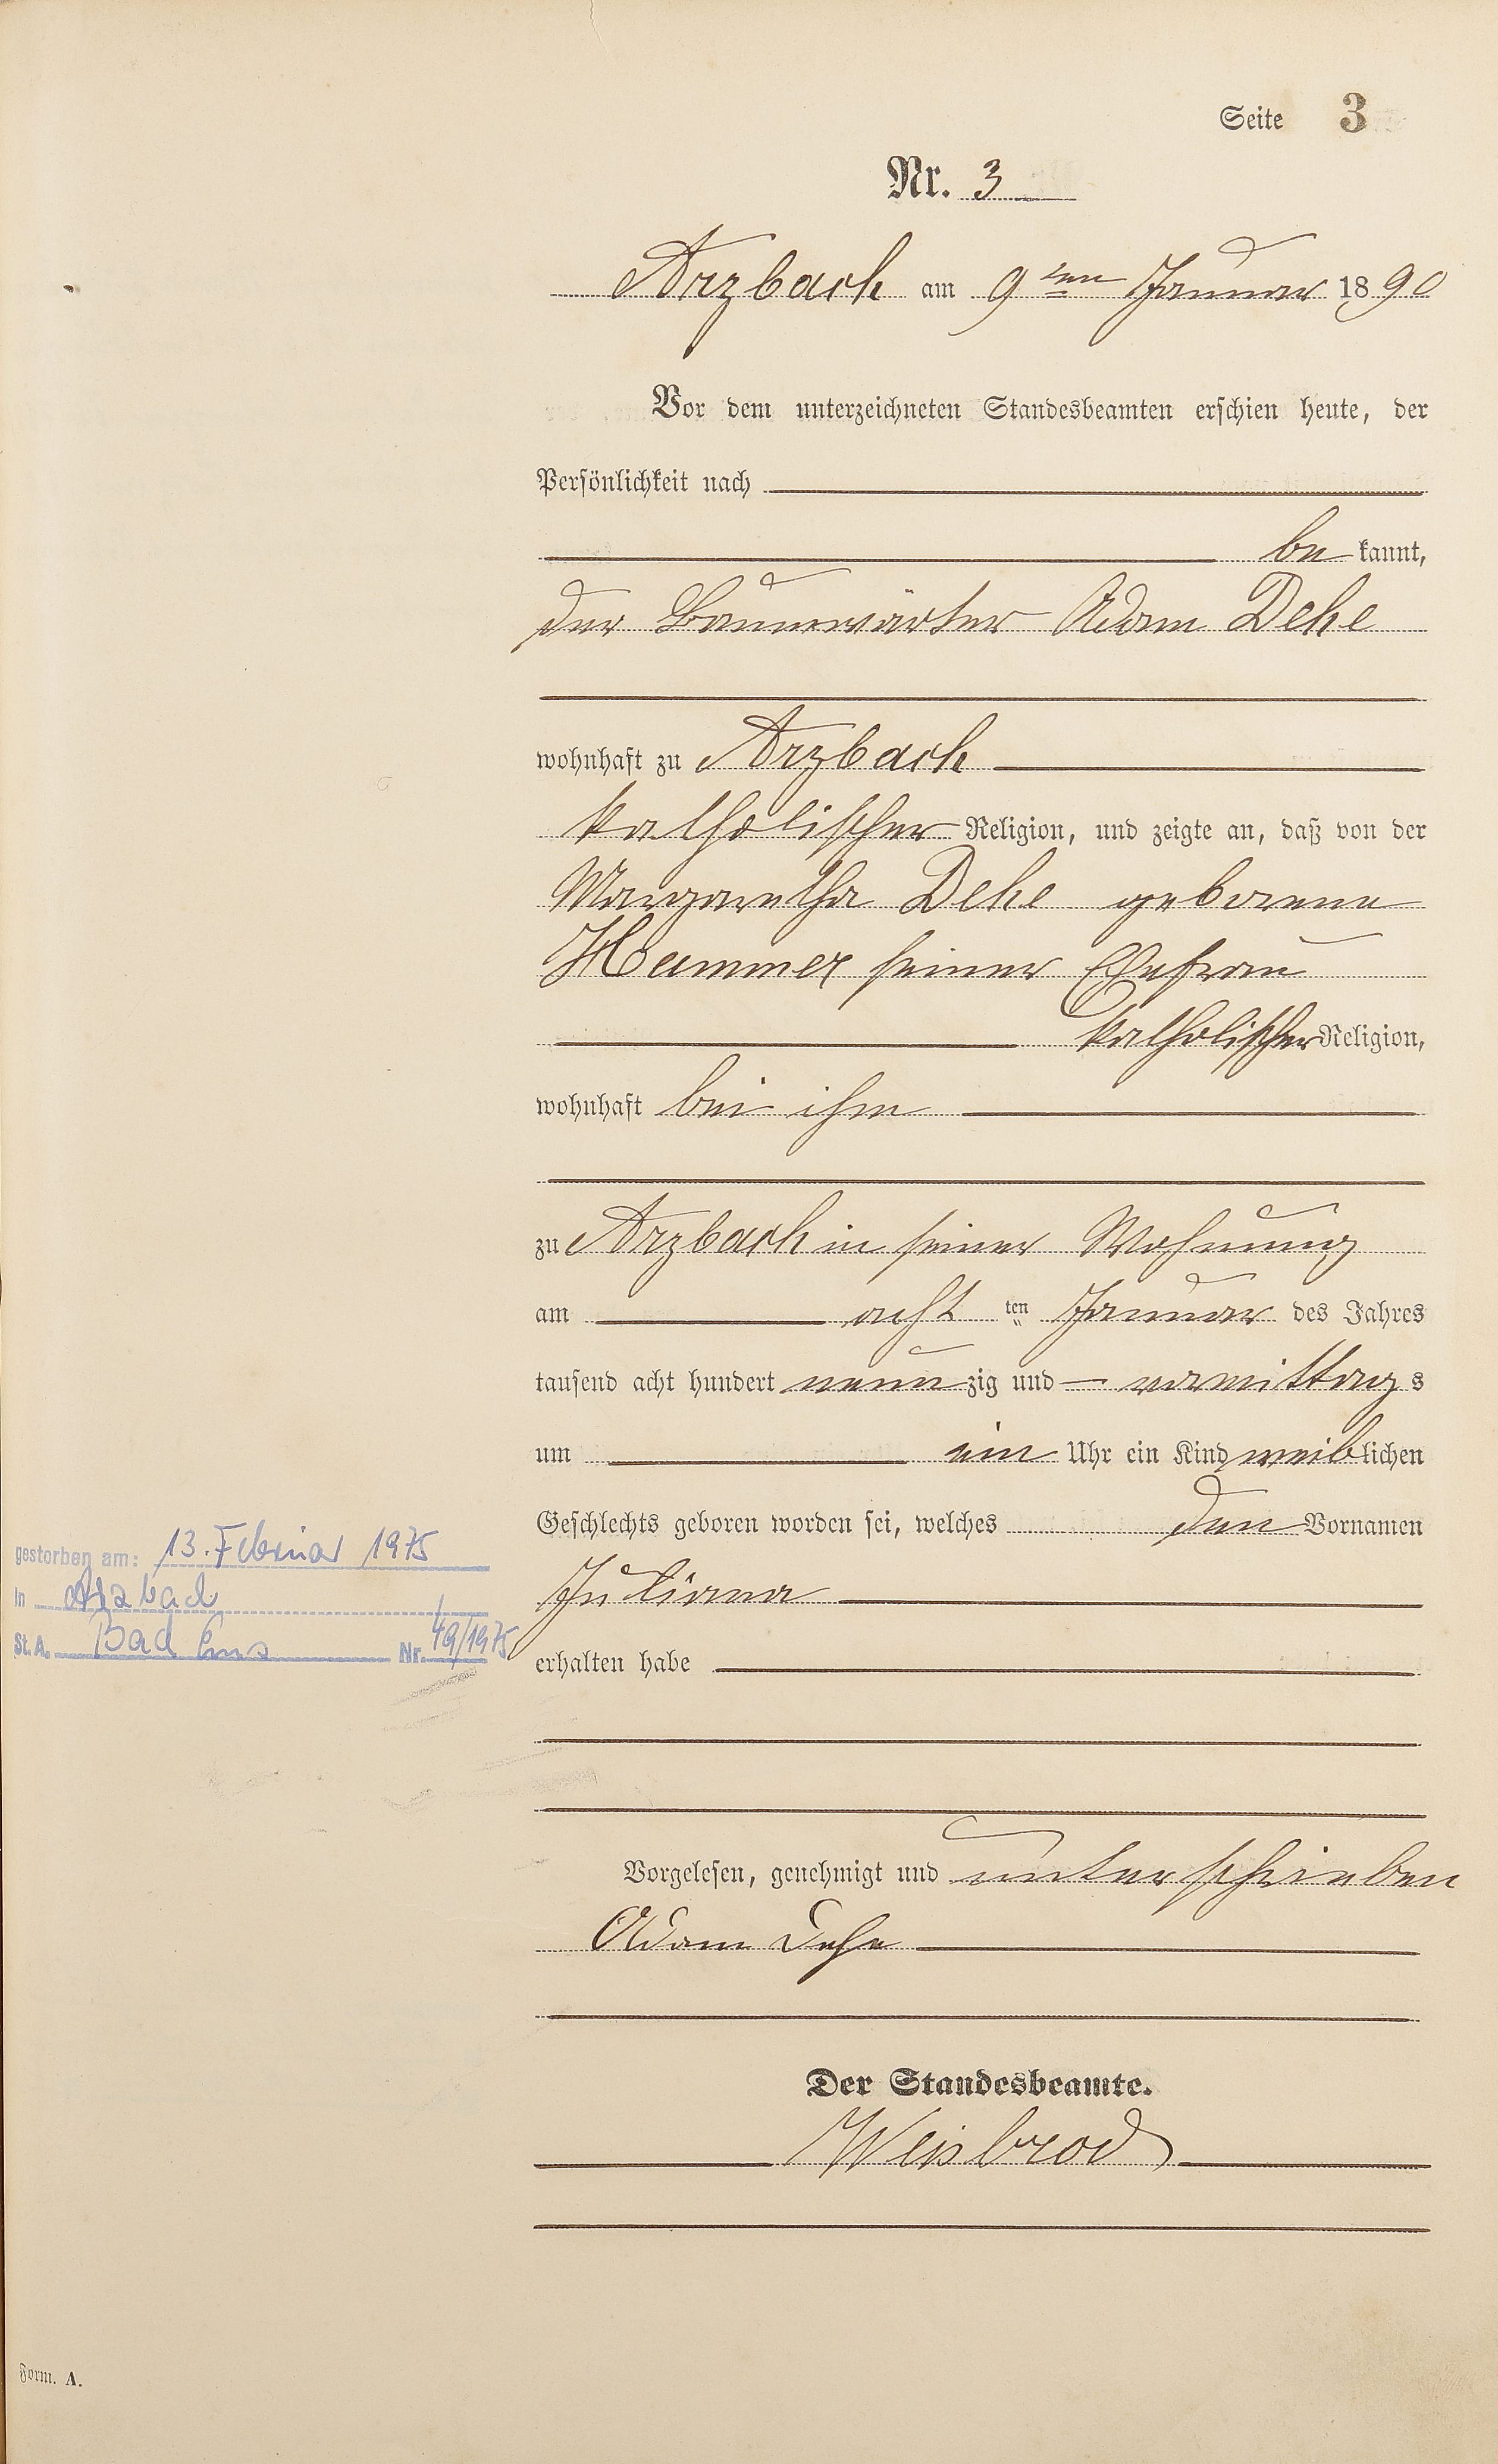 Seite 3
Nr. 3
Arzbach am 9ten Januar 1890
Vor dem unterzeichneten Standesbeamten erschien heute, der
Persönlichkeit nach
be kannt,
der Baumwärter Adam Dehe
wohnhaft zu Arzbach
katholischer Religion, und zeigte an, daß von der
Margaretha Dehe geborene
Hammer seiner Ehefrau
katholischer Religion,
wohnhaft bei ihm
zu Arzbach in seiner Wohnung
am acht ten Januar des Jahres
tausend acht hundert neun zig und vormittags
um ein Uhr ein Kind weiblichen
Geschlechts geboren worden sei, welches den Vornamen
Juliana
erhalten habe
gestorben am: 13. Februar 1975
in Arzbach
St. A. Bad Ems Nr. 49/1975
Vorgelesen, genehmigt und unterschrieben
Adam Dehe
Der Standesbeamte.
Weisbrod
Form. A.